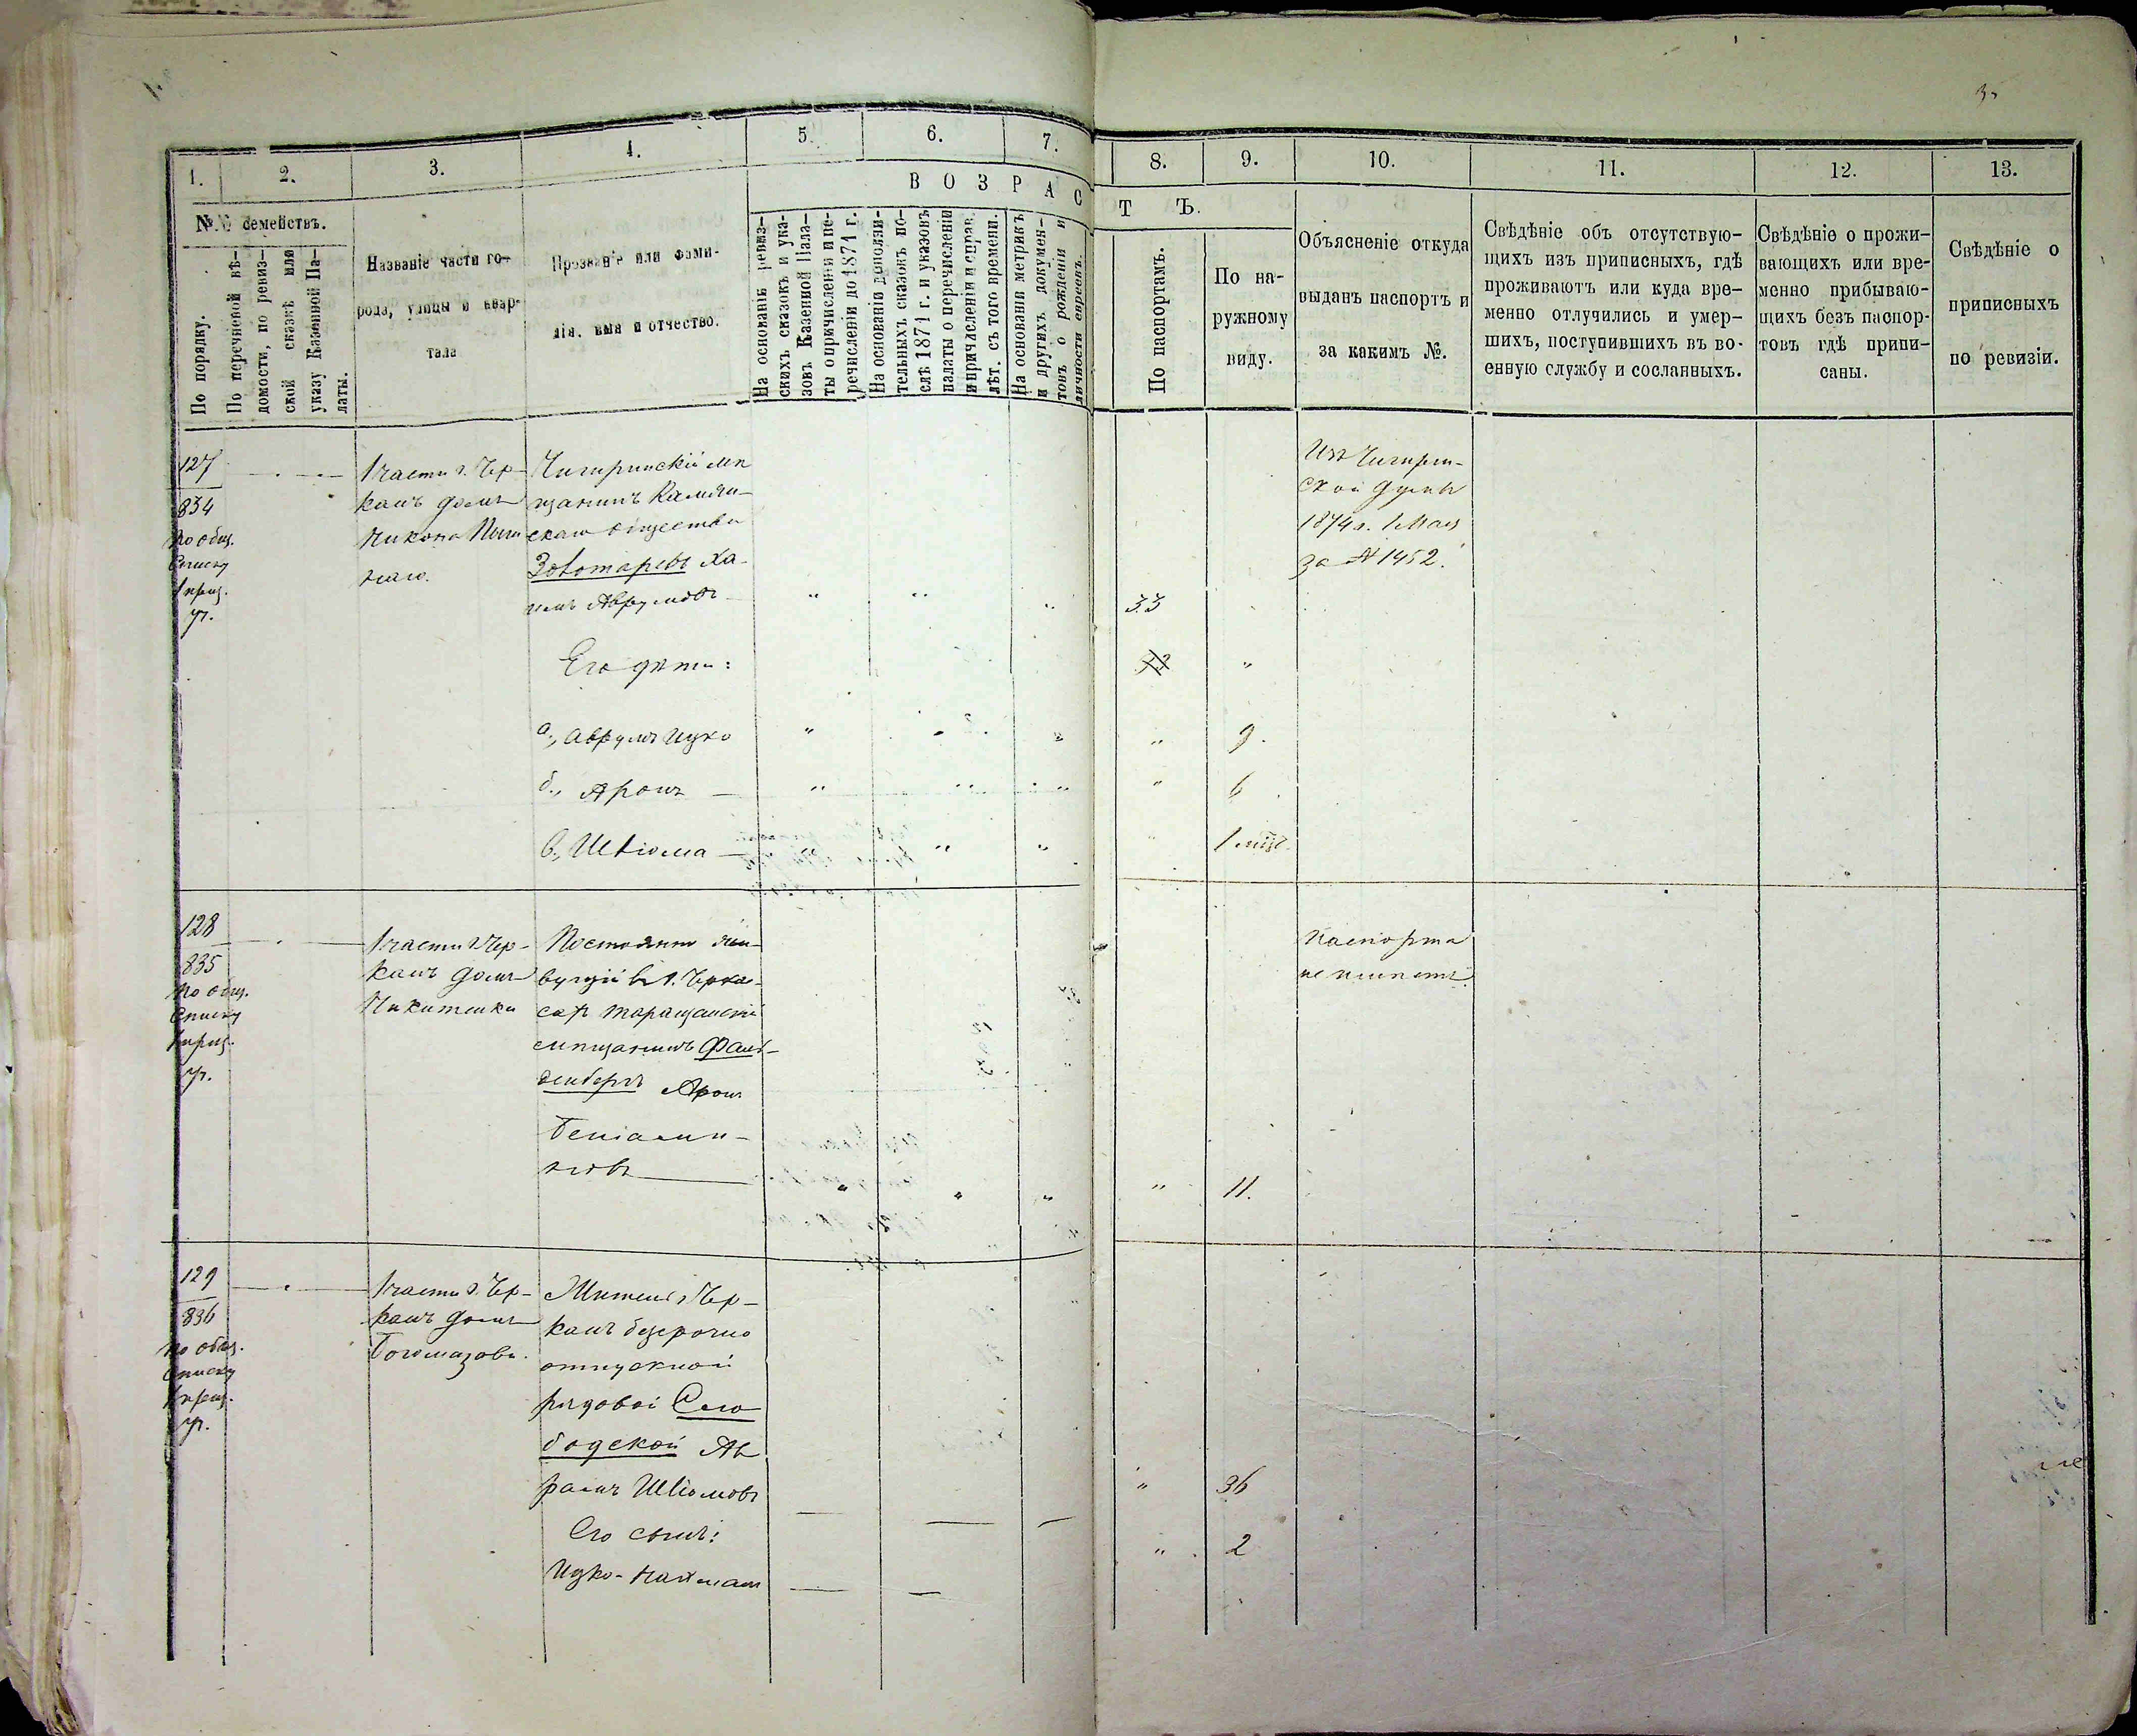 1.
2.
3.
4.
5.
6.
7.
8.
9.
10.
11.
12.
13.
В О З Р А С
Т Ъ.
№№ семействъ.
По порядку.
По перечневой вѣ-
домости, по ревиз-
ской сказкѣ или
указу Казенной Па-
латы.
Названіе части го-
рода, улицы и квар-
тала
Прозваніе или фами-
лія, имя и отчество.
На основаніи ревиз-
скихъ сказокъ и ука-
зовъ Казенной Пала-
ты о причисленіи и пе-
речисленіи до 1871 г.
На основаніи дополни-
тельныхъ сказокъ по-
слѣ 1871 г. и указовъ
палаты о перечисленіи
и причисленіи и справ.
лѣт. съ того времени.
На основаніи метрикъ
и другихъ докумен-
товъ о рожденіи и
личности евреевъ.
По паспортамъ.
По на-
ружному
виду.
Объясненіе откуда
выданъ паспортъ и
за какимъ №.
Свѣдѣніе объ отсутствую-
щихъ изъ приписныхъ, гдѣ
проживаютъ или куда вре-
менно отлучились и умер-
шихъ, поступившихъ въ во-
енную службу и сосланныхъ.
Свѣдѣніе о прожи-
вающихъ или вре-
менно прибываю-
щихъ безъ паспор-
товъ гдѣ припи-
саны.
Свѣдѣніе о
приписныхъ
по ревизіи.
127
834
по общ.
списку
1 приз.
уч.
1 части г. Чер-
касъ домъ
Чигиринскій мѣ
щанинъ
скаго общества
Золотаревъ Ха-
имъ Аврумовъ
33
Изъ Чигирин-
ской думы
1874 г. 1 Мая
за № 1452.
Его дѣти:
а., Аврумъ Ицко " " " " 9.
б., Аронъ " " " " 6
в., Шліома " " " 1 мѣс.
128
835
по общ.
списку
1 приз.
уч.
1 части г. Чер-
касъ домъ
Никитенки
Постоянно жи-
вущій въ г. Черка-
сахъ таращанскій
мѣщанинъ
Аронъ
Беніами-
новъ
" " " " 11.
Паспорта
не имѣетъ.
129
836
по общ.
списку
1 приз.
уч.
1 части г. Чер-
касъ домъ
Богомазова.
Житель г. Чер-
касъ безсрочно
отпускной
рядовой Сло
бодской Ав
рамъ Шліомовъ
" 36
Его сынъ:
Ицко-Нахманъ
" 2